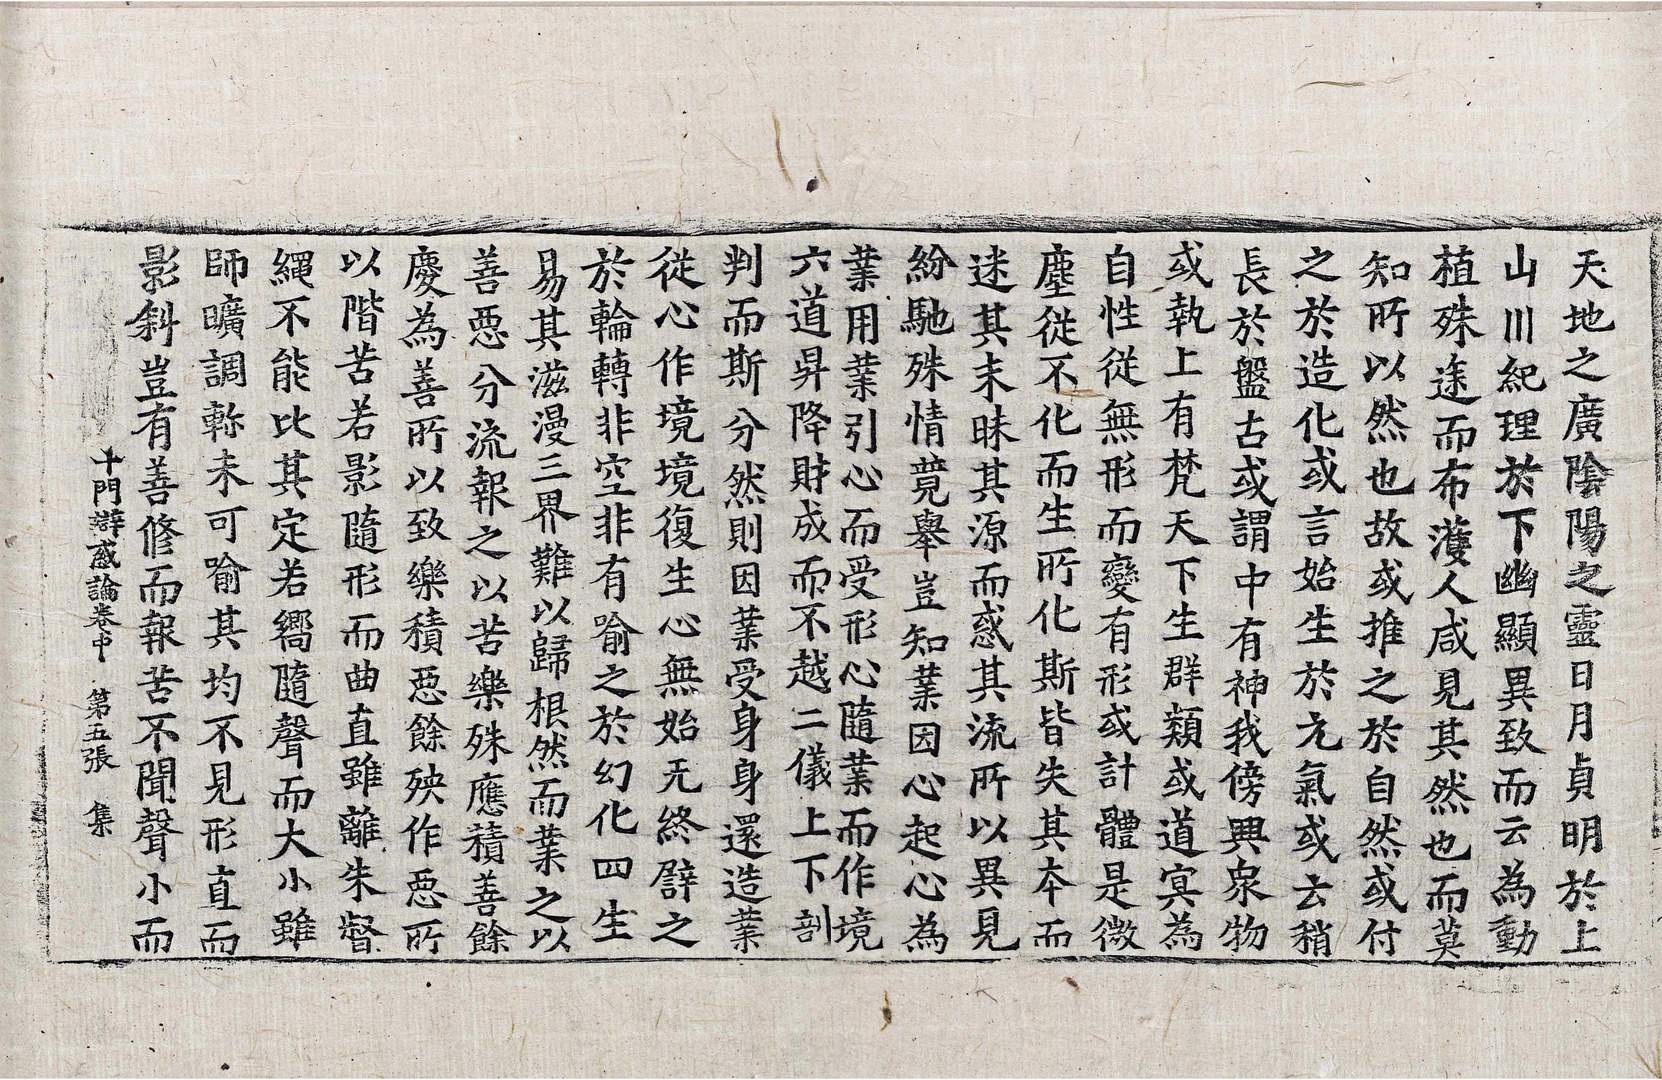 天地之廣陰陽之靈日月貞明於上
山川紀理於下幽顯異致而云為動
植殊途而布濩人咸見其然也而莫
知所以然也故或推之於自然或付
之於造化或言始生於元氣或云稍
長於盤古或謂中有神我傍興衆物
或執上有梵天下生群類或道㝠為
自性從無形而變有形或計體是微
塵從不化而生所化斯皆失其本而
迷其末昧其源而惑其流所以異見
紛馳殊情競舉豈知業因心起心為
業用業引心而受形心隨業而作境
六道昇降財成而不越二儀上下剖
判而斯分然則因業受身身還造業
從心作境境復生心無始无終譬之
於輪轉非空非有喻之於幻化四生
易其滋漫三界難以歸根然而業之以
善惡分流報之以苦樂殊應積善餘
慶為善所以致樂積惡餘殃作惡所
以階苦若影隨形而曲直雖離朱督
繩不能比其定若嚮隨聲而大小雖
師曠調軫未可喻其均不見形直而
影斜豈有善修而報苦不聞聲小而
十門辯惑論卷中 第五張 集